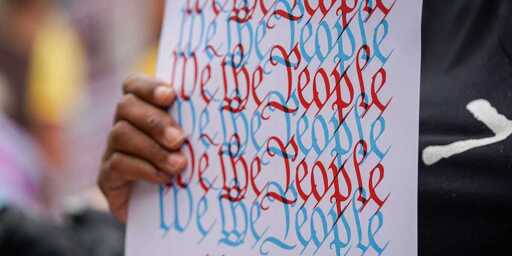 We the People
We the People
We the People
We the People
We the People
We the People